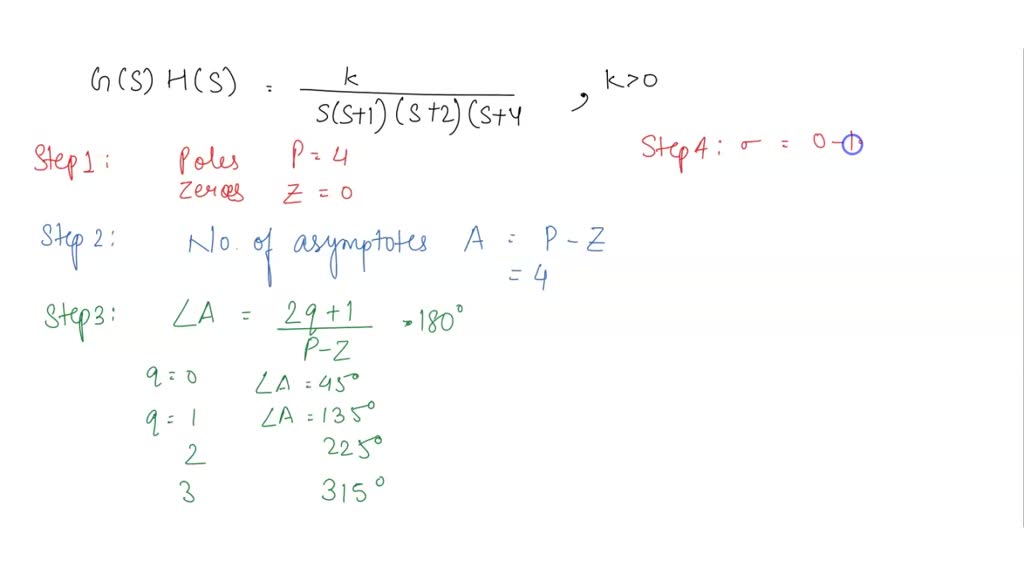 G(S) H(S) = k / S(S+1)(S+2)(S+4 , k>0
Step1: Poles P=4
Zeroes Z=0
Step 2: No. of asymptotes A = P-Z
= 4
Step3: ∠A = 2q+1 / P-Z · 180°
q=0 ∠A=45°
q=1 ∠A=135°
2 225°
3 315°
Step4: σ = 0-1